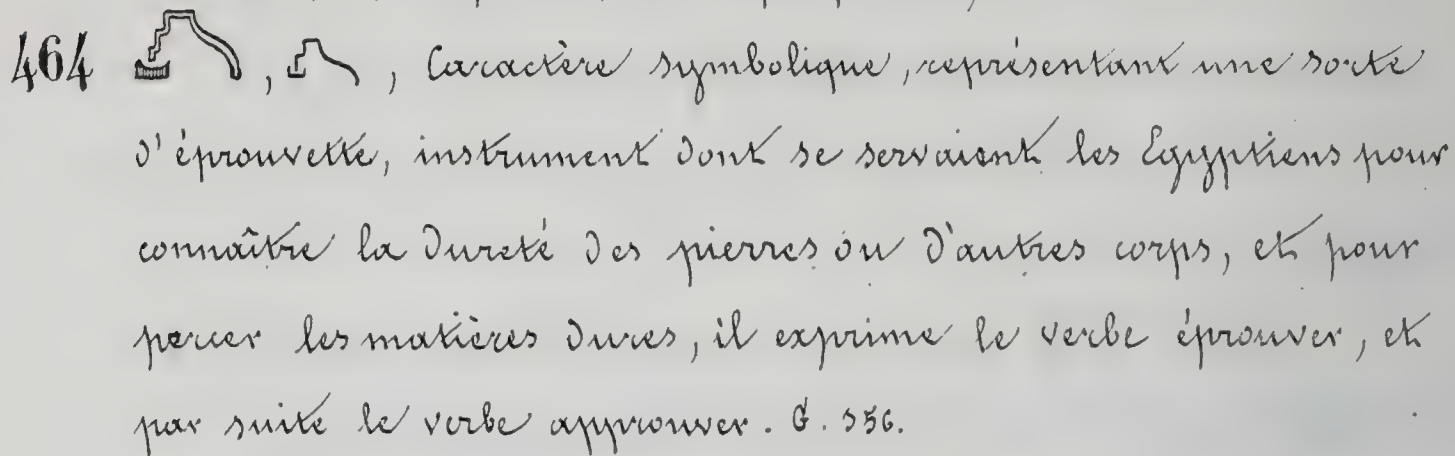 464 , , Caractère symbolique, représentant une sorte
d'éprouvette, instrument dont se servaient les Egyptiens pour
connaître la dureté des pierres ou d'autres corps, et pour
percer les matières dures, il exprime le verbe éprouver, et
par suite le verbe approuver. G. 356.